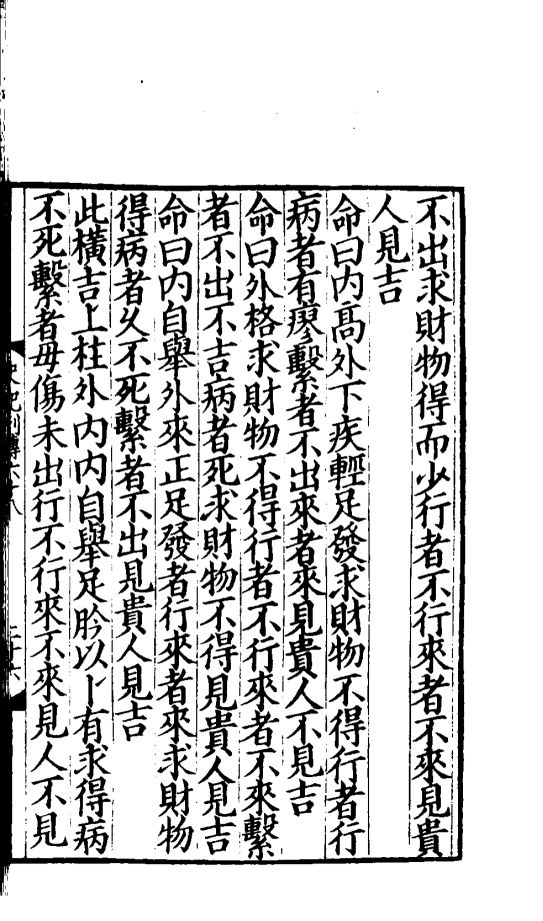 不出求財物得而少行者不行來者不來見貴
人見吉
命曰内髙外下疾輕足發求財物不得行者行
病者有瘳繫者不出來者來見貴人不見吉
命曰外格求財物不得行者不行來者不來繫
者不出不吉病者死求財物不得見貴人見吉
命曰内自舉外來正足發者行來者來求財物
得病者久不死繫者不出見貴人見吉
此橫吉上柱外内内自舉足肣以卜有求得病
不死繫者毋傷未出行不行來不來見人不見